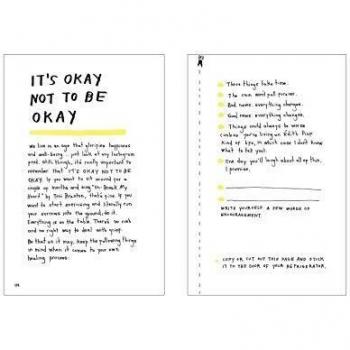 IT'S OKAY
NOT TO BE
OKAY
We live in an age that glorifies happiness
and well-being... just look at any Instagram
post. Still, though, it's really important to
remember that IT'S OKAY NOT TO BE
OKAY. If you want to sit around for a
couple of months and sing "Un-Break My
Heart" by Toni Braxton, that's fine. If you
want to start exercising and literally run
your sorrows into the ground, do it.
Everything is on the table. There's no
and no right way to deal with grief.
Be that as it may, keep the following things
in mind when it comes to your own
healing process:
These things take time.
The cure won't
everything changes.
everything changes.
Things could always be worse
(unless you're living an Edith Piaf
kind of life, in which case I don't know
what to tell you).
One day you'll laugh about all of this,
I promise.
WRITE YOURSELF A FEW WORDS OF
ENCOURAGEMENT.
COPY OR CUT OUT THIS PAGE AND STICK
IT TO THE DOOR OF YOUR REFRIGERATOR.